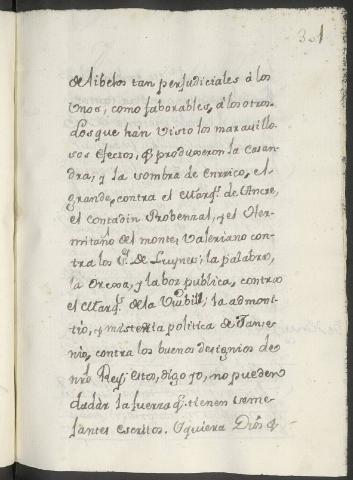 301
de libelos tan perjudiciales à los
unos, como faborables, à los otros.
Los que hàn visto los maravillo-
sos efectos, q̃ produxeron la Casan-
dra, y la sombra de Enrrico, el
grande, contra el Marq.^s de Ancre,
el Contadin Probenzal, y el Her-
mitaño del monte Valeriano con-
tra los S.^s de Luynes; la palabra,
la Oressa, y la boz publica, contra
el Marq.^s de la Viubill; la admoni-
tiò, y misteria politica de Janse-
nio, contra los buenos designios de
nrõ Rey; estos, digo yo, no pueden
dudàr la fuerza q̃ tienen seme-
jantes escritos. Uquiera Diòs q̃